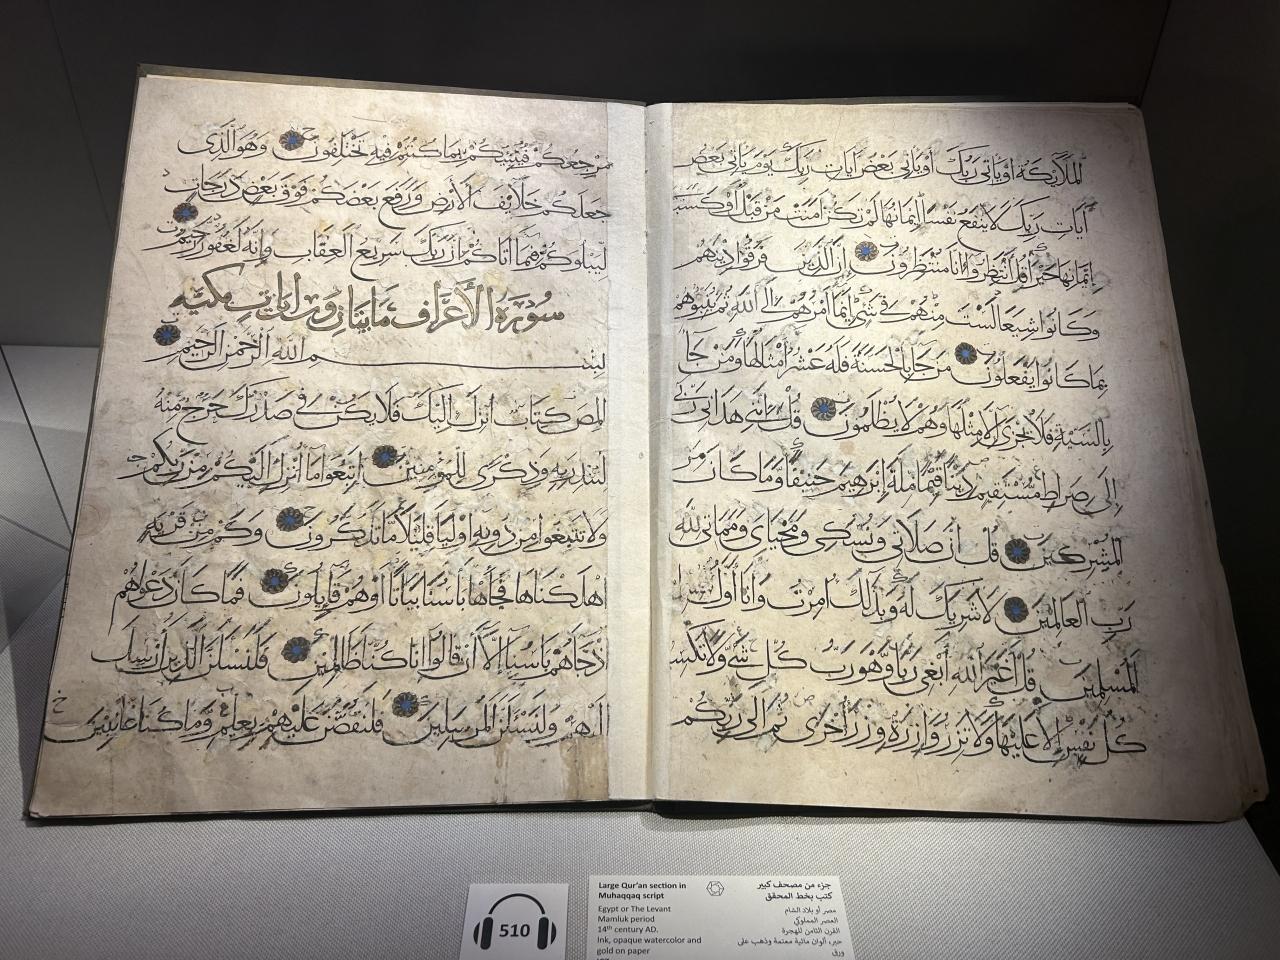 الملائكة او ياتي ربك او ياتي بعض ايات ربك يوم ياتي بعض
ايات ربك لا ينفع نفسا ايمانها لم تكن امنت من قبل او كسبت
في ايمانها خيرا قل انتظروا انا منتظرون ان الذين فرقوا دينهم
وكانوا شيعا لست منهم في شي انما امرهم الى الله ثم ينبئهم
بما كانوا يفعلون من جا بالحسنة فله عشر امثالها ومن جا
بالسيئة فلا يجزى الا مثلها وهم لا يظلمون قل انني هداني ربي
الى صراط مستقيم دينا قيما ملة ابرهيم حنيفا وما كان من
المشركين قل ان صلاتي ونسكي ومحياي ومماتي لله
رب العالمين لا شريك له وبذلك امرت وانا اول
المسلمين قل اغير الله ابغي ربا وهو رب كل شي ولا تكسب
كل نفس الا عليها ولا تزر وازرة وزر اخرى ثم الى ربكم
مرجعكم فينبئكم بما كنتم فيه تختلفون وهو الذي
جعلكم خلايف الارض ورفع بعضكم فوق بعض درجات
ليبلوكم فيما اتاكم ان ربك سريع العقاب وانه لغفور رحيم
سورة الاعراف مايتان وست ايات مكية
بسم الله الرحمن الرحيم
المص كتاب انزل اليك فلا يكن في صدرك حرج منه
لتنذر به وذكرى للمؤمنين اتبعوا ما انزل اليكم من ربكم
ولا تتبعوا من دونه اوليا قليلا ما تذكرون وكم من قرية
اهلكناها فجاها باسنا بياتا او هم قايلون فما كان دعواهم
اذ جاهم باسنا الا ان قالوا انا كنا ظالمين فلنسئلن الذين ارسل
اليهم ولنسئلن المرسلين فلنقصن عليهم بعلم وما كنا غائبين
510
Large Qur'an section in
Muhaqqaq script
Egypt or The Levant
Mamluk period
14th century AD.
Ink, opaque watercolor and
gold on paper
جزء من مصحف كبير
كتب بخط المحقق
مصر أو بلاد الشام
العصر المملوكي
القرن الثامن للهجرة
حبر، ألوان مائية معتمة وذهب على
ورق